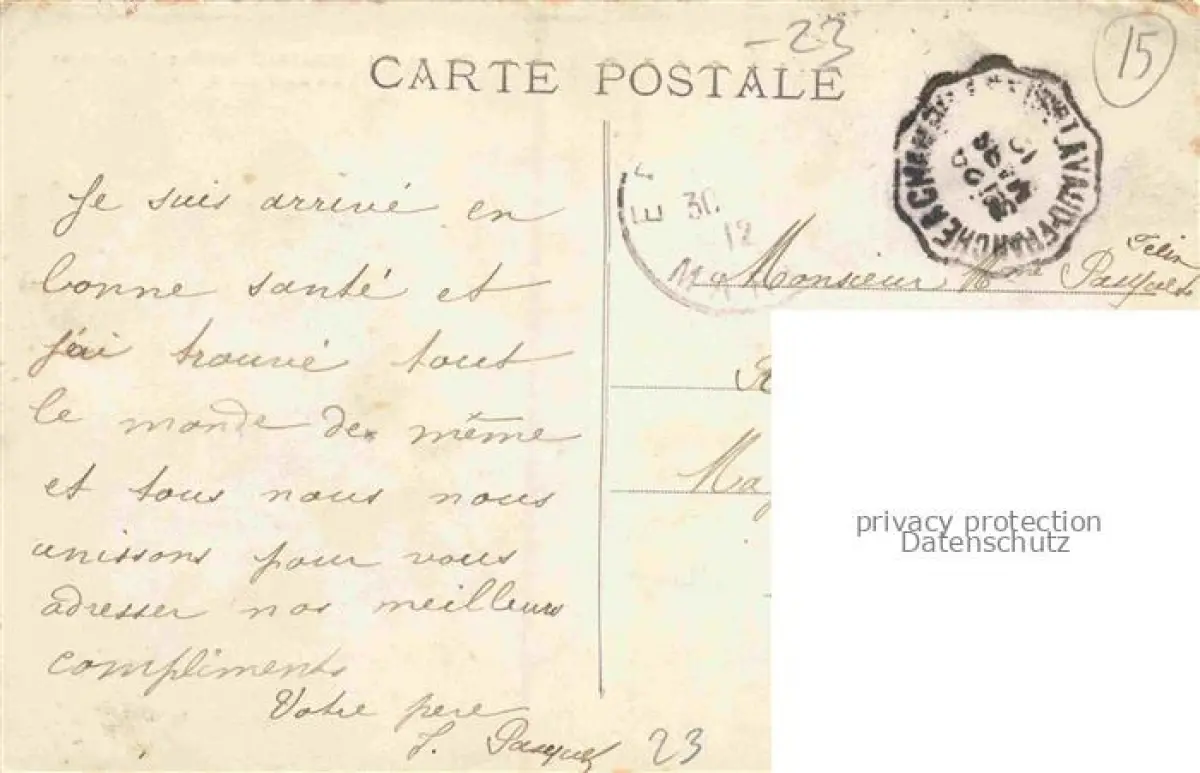 -23
15
CARTE POSTALE
Je suis arrivé en
bonne santé et
j'ai trouvé tout
le monde de même
et tous nous nous
unissons pour vous
adresser nos meilleurs
compliments
Votre pere
J. Pasquet
23
30
12
LAVAUD-FRANCHE
Monsieur, Mme Pasquet
Félix
Ma
privacy protection
Datenschutz